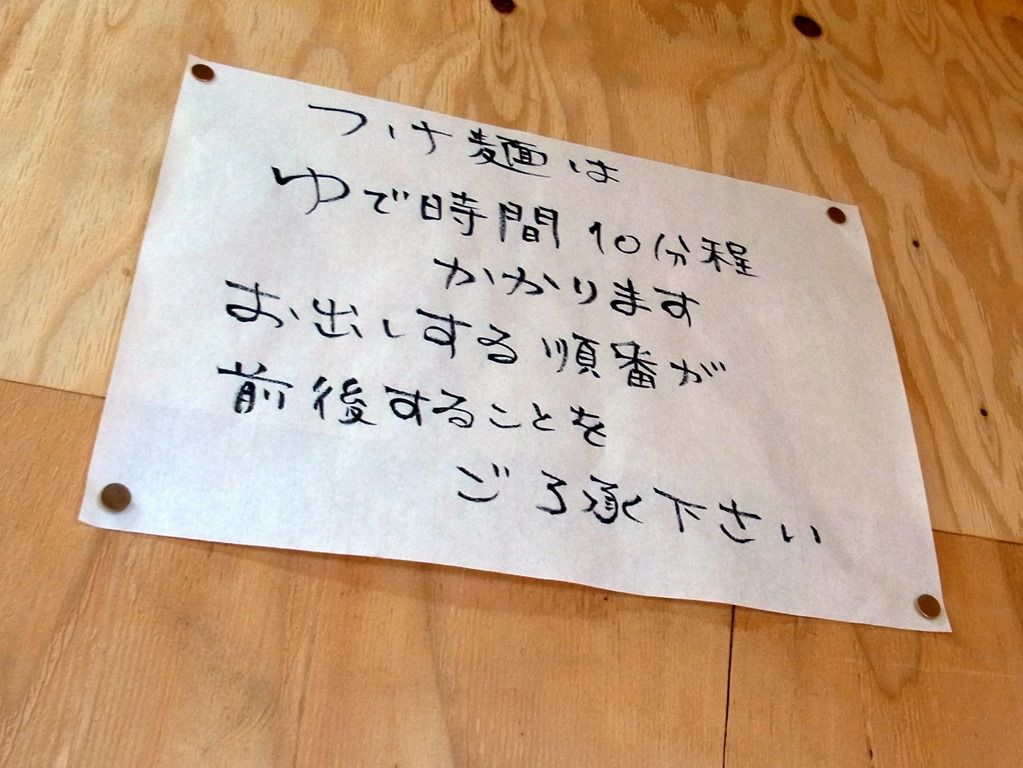 つけ麺は
ゆで時間10分程
かかります
お出しする順番が
前後することを
ご了承下さい